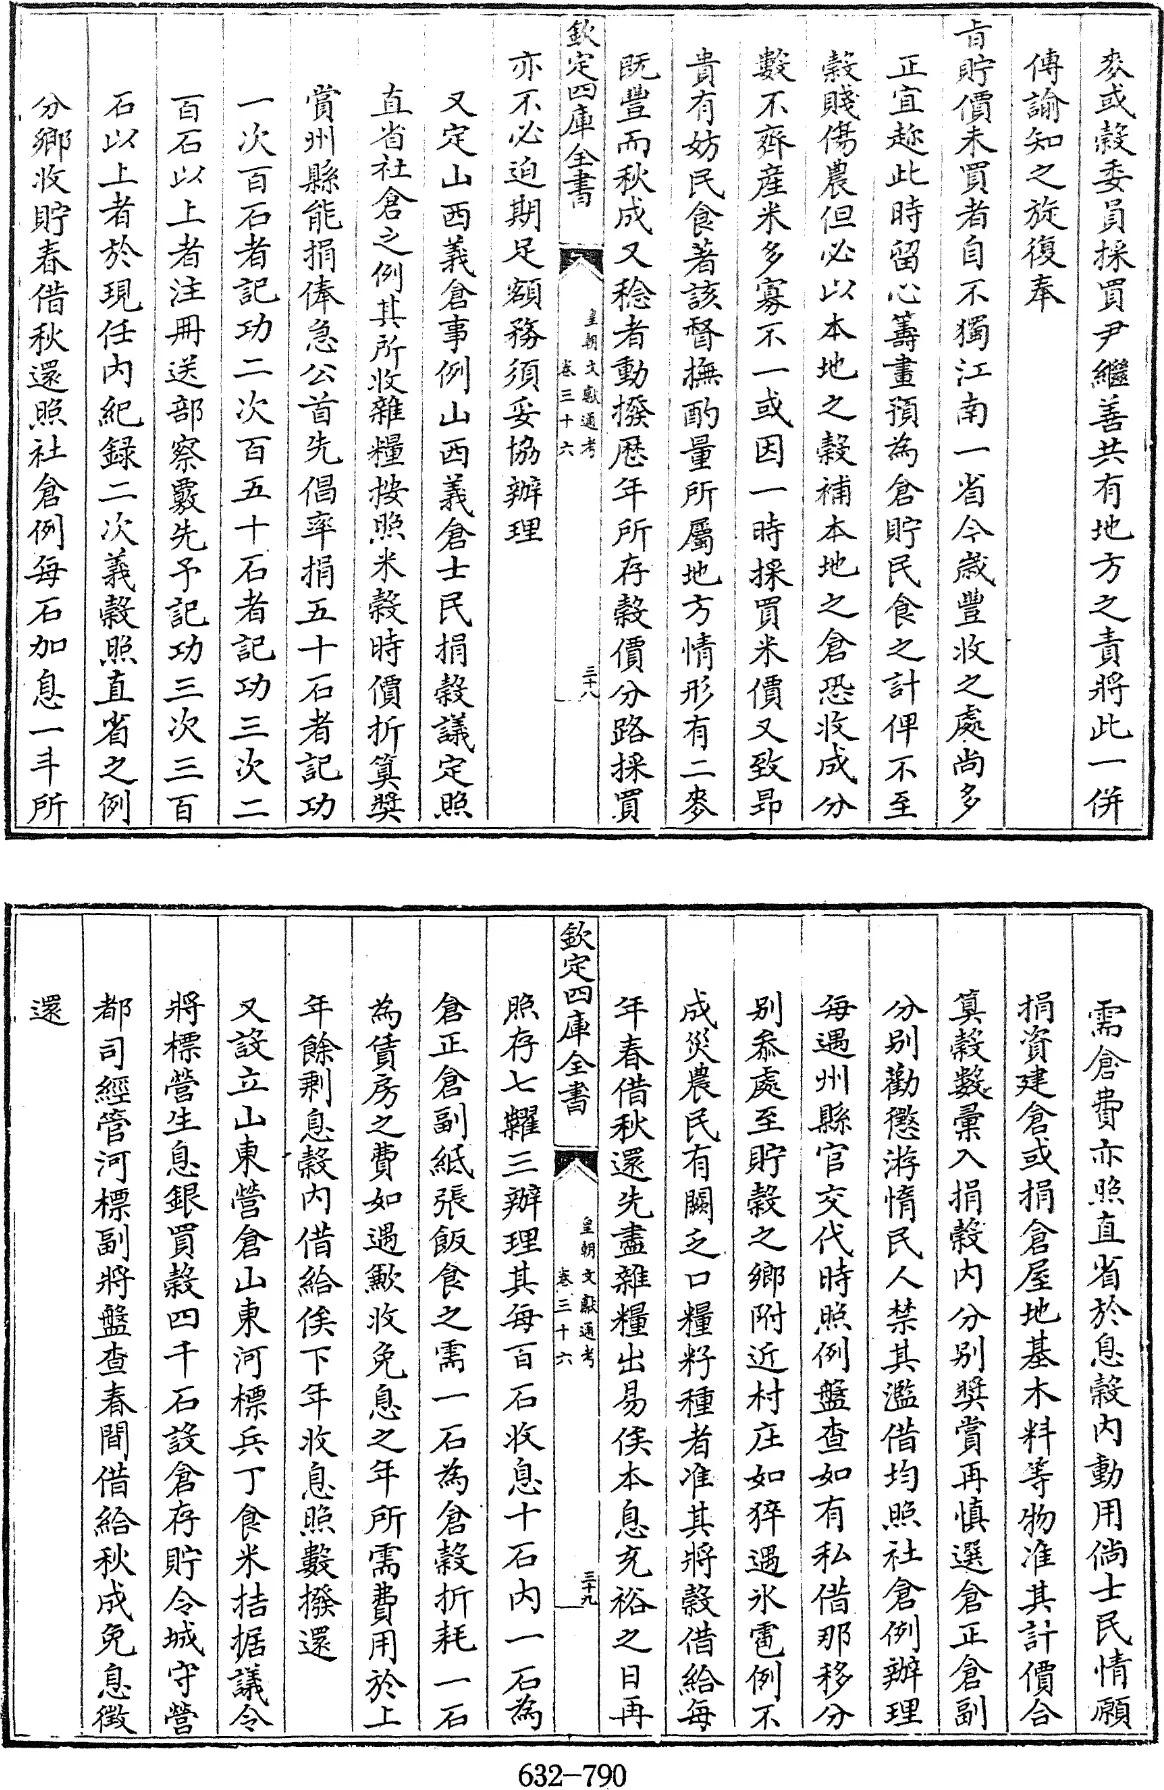 麥或穀委員採買尹繼善共有地方之責將此一併
傳諭知之旋復奉
旨貯價未買者自不獨江南一省今歲豐收之處尚多
正宜趁此時留心籌畫預為倉貯民食之計俾不至
穀賤傷農但必以本地之穀補本地之倉恐收成分
數不齊産米多寡不一或因一時採買米價又致昻
貴有妨民食著該督撫酌量所屬地方情形有二麥
既豐而秋成又稔者動撥歴年所存穀價分路採買
欽定四庫全書
皇朝文獻通考
卷三十六
三十八
亦不必迫期足額務須妥協辦理
又定山西義倉事例山西義倉士民捐穀議定照
直省社倉之例其所收雜糧按照米穀時價折算獎
賞州縣能捐俸急公首先倡率捐五十石者記功
一次百石者記功二次百五十石者記功三次二
百石以上者注冊送部察覈先予記功三次三百
石以上者於現任內紀録二次義穀照直省之例
分鄉收貯春借秋還照社倉例每石加息一斗所
需倉費亦照直省於息穀內動用倘士民情願
捐資建倉或捐倉屋地基木料等物准其計價合
算穀數彙入捐穀內分別奬賞再慎選倉正倉副
分別勸懲游惰民人禁其濫借均照社倉例辦理
每遇州縣官交代時照例盤查如有私借那移分
別叅處至貯穀之鄉附近村庄如猝遇氷雹例不
成災農民有闗乏口糧籽種者准其將穀借給每
年春借秋還先盡雜糧出易俟本息充裕之日再
欽定四庫全書
皇朝文獻通考
卷三十六
三十九
照存七糶三辦理其每百石收息十石內一石為
倉正倉副紙張飯食之需一石為倉穀折耗一石
為賃房之費如遇歉收免息之年所需費用於上
年餘剩息穀內借給俟下年收息照數撥還
又設立山東營倉山東河標兵丁食米拮据議令
將標營生息銀買穀四千石設倉存貯令城守營
都司經管河標副將盤查春間借給秋成免息徵
還
632-790